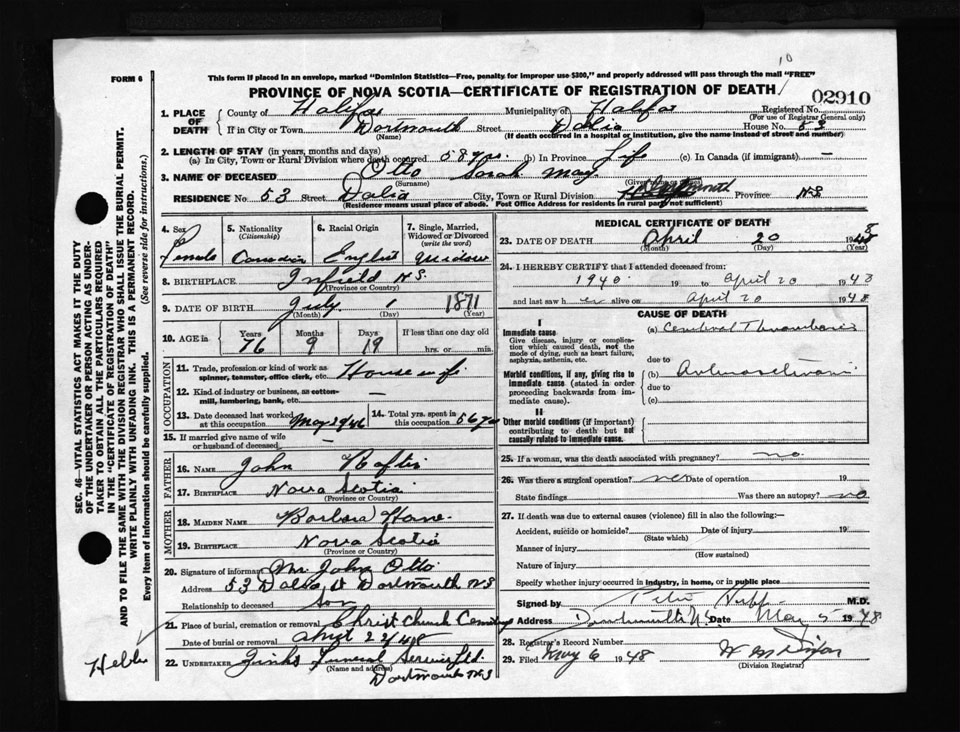 10
FORM 6
This form if placed in an envelope, marked "Dominion Statistics—Free, penalty for improper use $300," and properly addressed will pass through the mail "FREE"
PROVINCE OF NOVA SCOTIA—CERTIFICATE OF REGISTRATION OF DEATH
02910
1. PLACE OF DEATH
County of Halifax Municipality of Halifax Registered No.
(For use of Registrar General only)
If in City or Town Dartmouth Street Dalia House No. 53
(Name) (If death occurred in a hospital or institution, give the name instead of street and number)
2. LENGTH OF STAY (in years, months and days)
(a) In City, Town or Rural Division where death occurred 58 yrs. (b) In Province Life (c) In Canada (if immigrant) —
3. NAME OF DECEASED Otto Sarah May
(Surname) (Given
RESIDENCE No. 53 Street Dalia City, Town or Rural Division Dartmouth Province N.S
(Residence means usual place of abode. Post Office Address for residents in rural parts not sufficient)
4. Sex Female
5. Nationality (Citizenship) Canadian
6. Racial Origin English
7. Single, Married, Widowed or Divorced (write the word) Widow
8. BIRTHPLACE Enfield N.S.
(Province or Country)
9. DATE OF BIRTH July 1 1871
(Month) (Day) (Year)
10. AGE in Years Months Days If less than one day old
76 9 19 hrs. or min.
OCCUPATION
11. Trade, profession or kind of work as spinner, teamster, office clerk, etc. Housewife
12. Kind of industry or business, as cotton-mill, lumbering, bank, etc. —
13. Date deceased last worked at this occupation May 1946
14. Total yrs. spent in this occupation 56 yrs
15. If married give name of wife or husband of deceased —
FATHER
16. NAME John
17. BIRTHPLACE Nova Scotia
(Province or Country)
MOTHER
18. MAIDEN NAME Barbara
19. BIRTHPLACE Nova Scotia
(Province or Country)
20. Signature of informant Mr John Otto
Address 53 Dalia St Dartmouth N.S
Relationship to deceased Son
21. Place of burial, cremation or removal Christ Church Cemetery
Date of burial or removal April 22/48
22. UNDERTAKER Zinks Funeral Service Ltd.
(Name and address)
Dartmouth N.S
MEDICAL CERTIFICATE OF DEATH
23. DATE OF DEATH April 20 1948
(Month) (Day) (Year)
24. I HEREBY CERTIFY that I attended deceased from:
1940 19 to April 20 1948
and last saw h er alive on April 20 1948
CAUSE OF DEATH
I
Immediate cause
Give disease, injury or complication which caused death, not the mode of dying, such as heart failure, asphyxia, asthenia, etc.
(a) Cerebral Thrombosis
due to
Morbid conditions, if any, giving rise to immediate cause (stated in order proceeding backwards from immediate cause).
(b) Arteriosclerosis
due to
(c)
II
Other morbid conditions (if important) contributing to death but not causally related to immediate cause.
25. If a woman, was the death associated with pregnancy? no
26. Was there a surgical operation? no Date of operation 19
State findings Was there an autopsy? no
27. If death was due to external causes (violence) fill in also the following:—
Accident, suicide or homicide? Date of injury 19
(State which)
Manner of injury
(How sustained)
Nature of injury
Specify whether injury occurred in industry, in home, or in public place
Signed by M.D.
Address Dartmouth N.S. Date May 5 1948
28. Registrar's Record Number
29. Filed May 6 1948
(Division Registrar)
SEC. 46—VITAL STATISTICS ACT MAKES IT THE DUTY
OF THE UNDERTAKER OR PERSON ACTING AS UNDERTAKER TO OBTAIN ALL THE PARTICULARS REQUIRED
IN THE "CERTIFICATE OF REGISTRATION OF DEATH"
AND TO FILE THE SAME WITH THE DIVISION REGISTRAR WHO SHALL ISSUE THE BURIAL PERMIT.
WRITE PLAINLY WITH UNFADING INK. THIS IS A PERMANENT RECORD.
Every item of information should be carefully supplied. (See reverse side for instructions.)